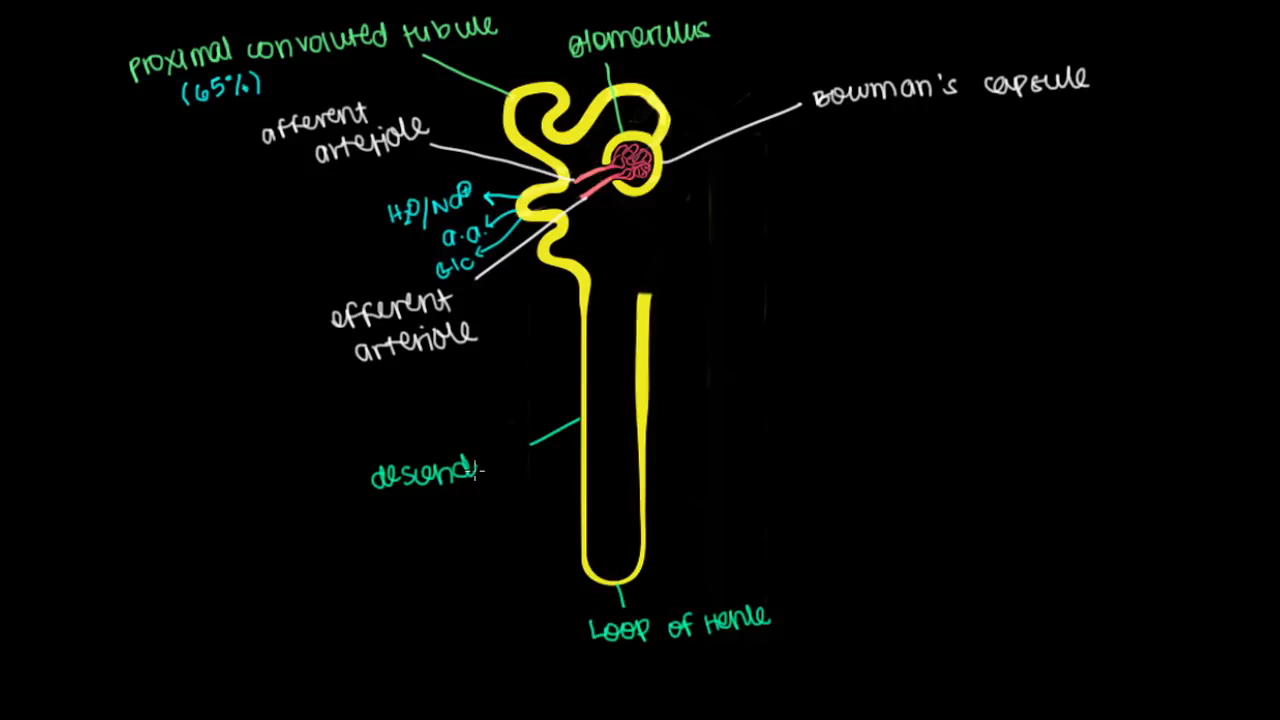 Proximal convoluted tubule
(65%)
Glomerulus
Bowman's capsule
afferent
arteriole
H2O/Na+
a.a.
Glc
efferent
arteriole
descend
Loop of Henle